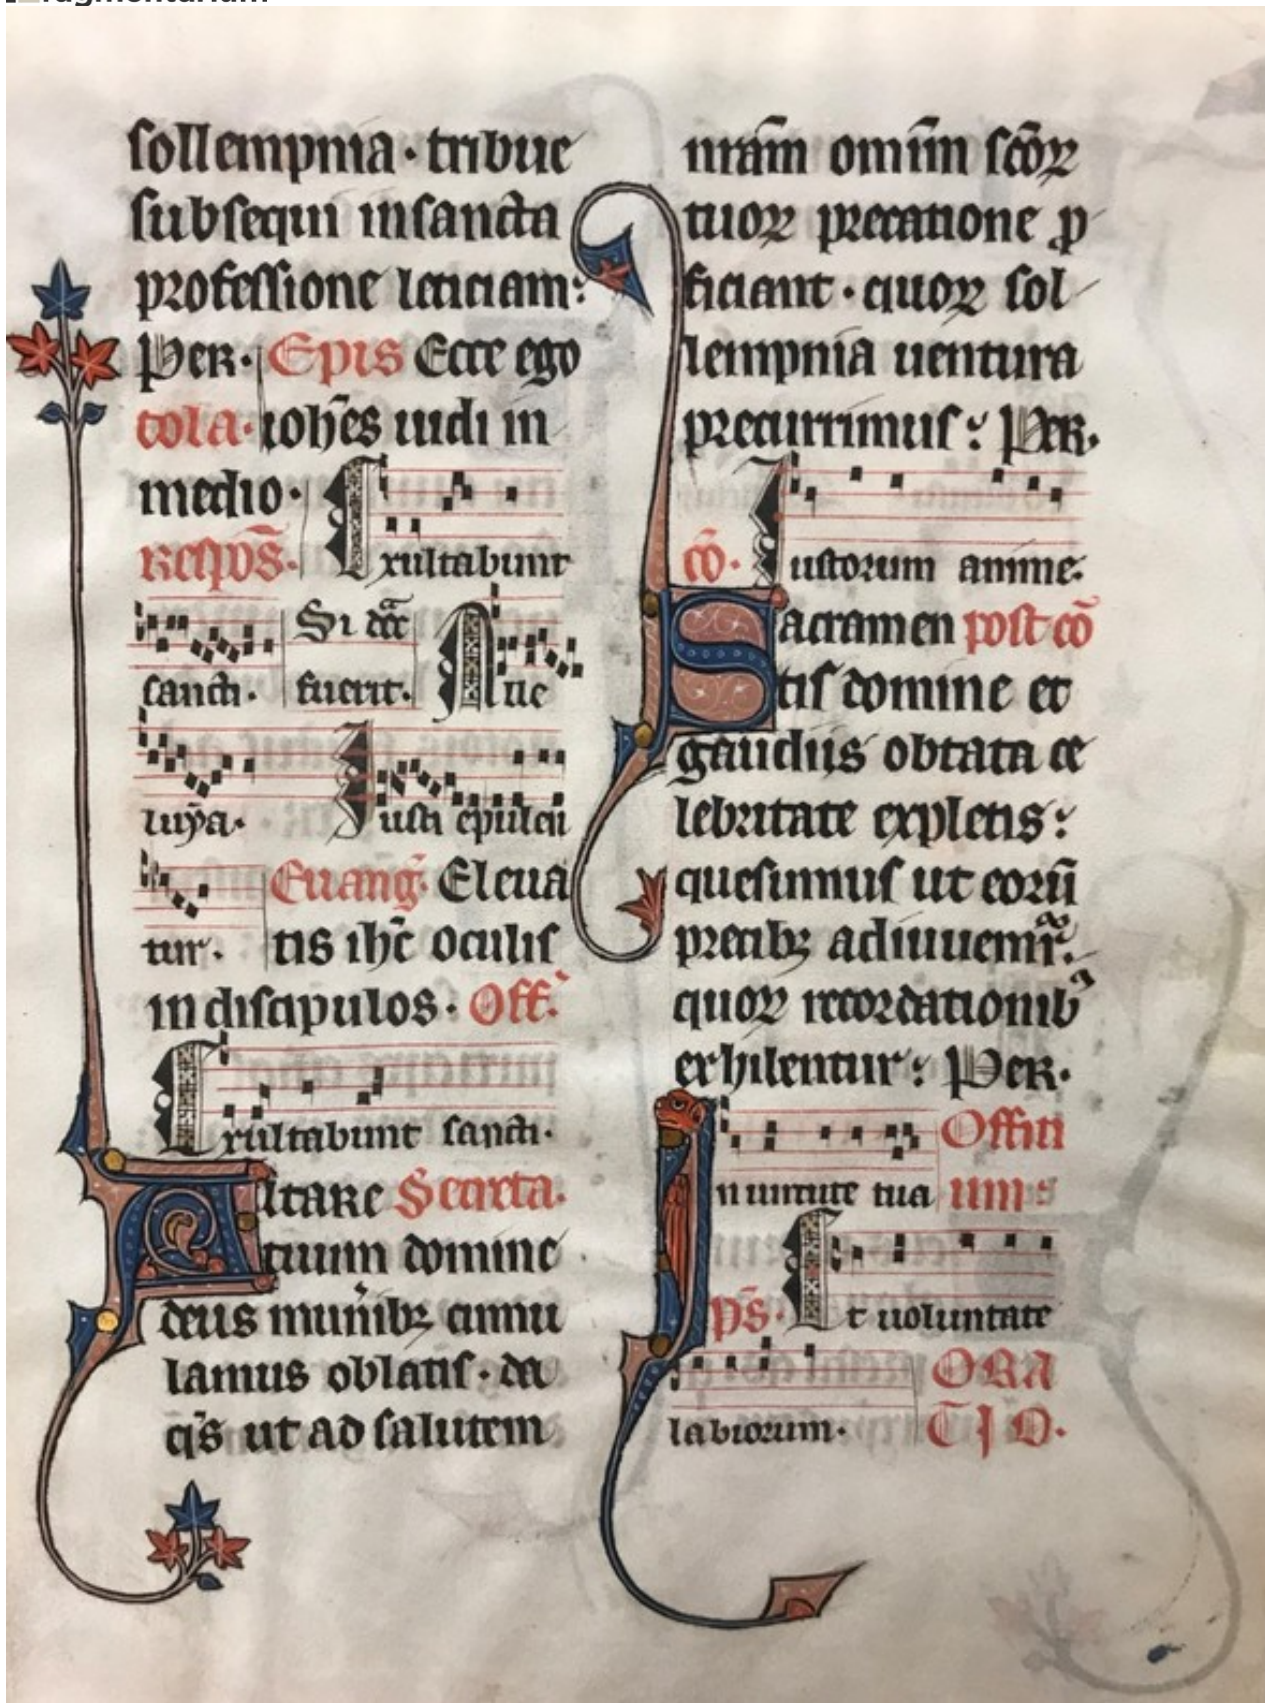 fragmentarium
sollempnia · tribue
subsequi in sancta
professione leticiam:
Per. Epis Ecce ego
tola. ioh̄es uidi in
medio.
Respōs. Exultabunt
sancti. Si dc̄
fuerit. Alle
luya. Iusti epulen
tur. Euanḡ. Eleua
tis ih̄c oculis
in discipulos. Off.
Exultabunt sancti.
Altare Secreta.
tuum domine
deus munīibꝫ cumu
lamus oblatis · da
q̄s ut ad salutem
nrām omīm sc̄oꝝ
tuoꝝ precatione ꝓ
ficiant · quoꝝ sol
lempnia uentura
precurrimus: Per.
cō. Iustorum anime.
Sacramen post cō
tis domine et
gaudiis obtata ce
lebritate expletis:
quesumus ut eorū
precibꝫ adiuuemr̄.
quoꝝ recordationibꝰ
exhilentur: Per.
In uirtute tua Offiti
um:
ps̄. Et uoluntate
labiorum. ORA
TIO.